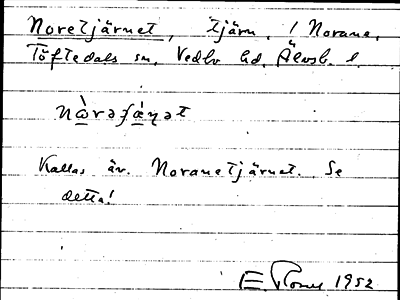 Noretjärnet, tjärn. / Norane.
Töftedals sn. Vedbo hd. Älvsb. l.
nàrəʃæ̀ṇət
Kallas äv. Noranetjärnet. Se
detta!
1952